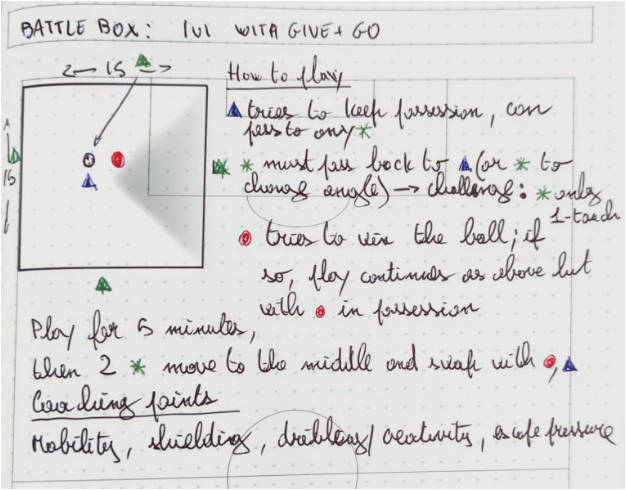 BATTLE BOX: 1V1 WITH GIVE + GO
2 ← 15 →
How to play
15
tries to keep possession, can
pass to any *
* must pass back to (or * to
change angle) → challenge: * only
1-touch
tries to win the ball; if
so, play continues as above but
with in possession
Play for 5 minutes,
then 2 * move to the middle and swap with ,
Coaching points
Mobility, shielding, dribbling/creativity, escape pressure